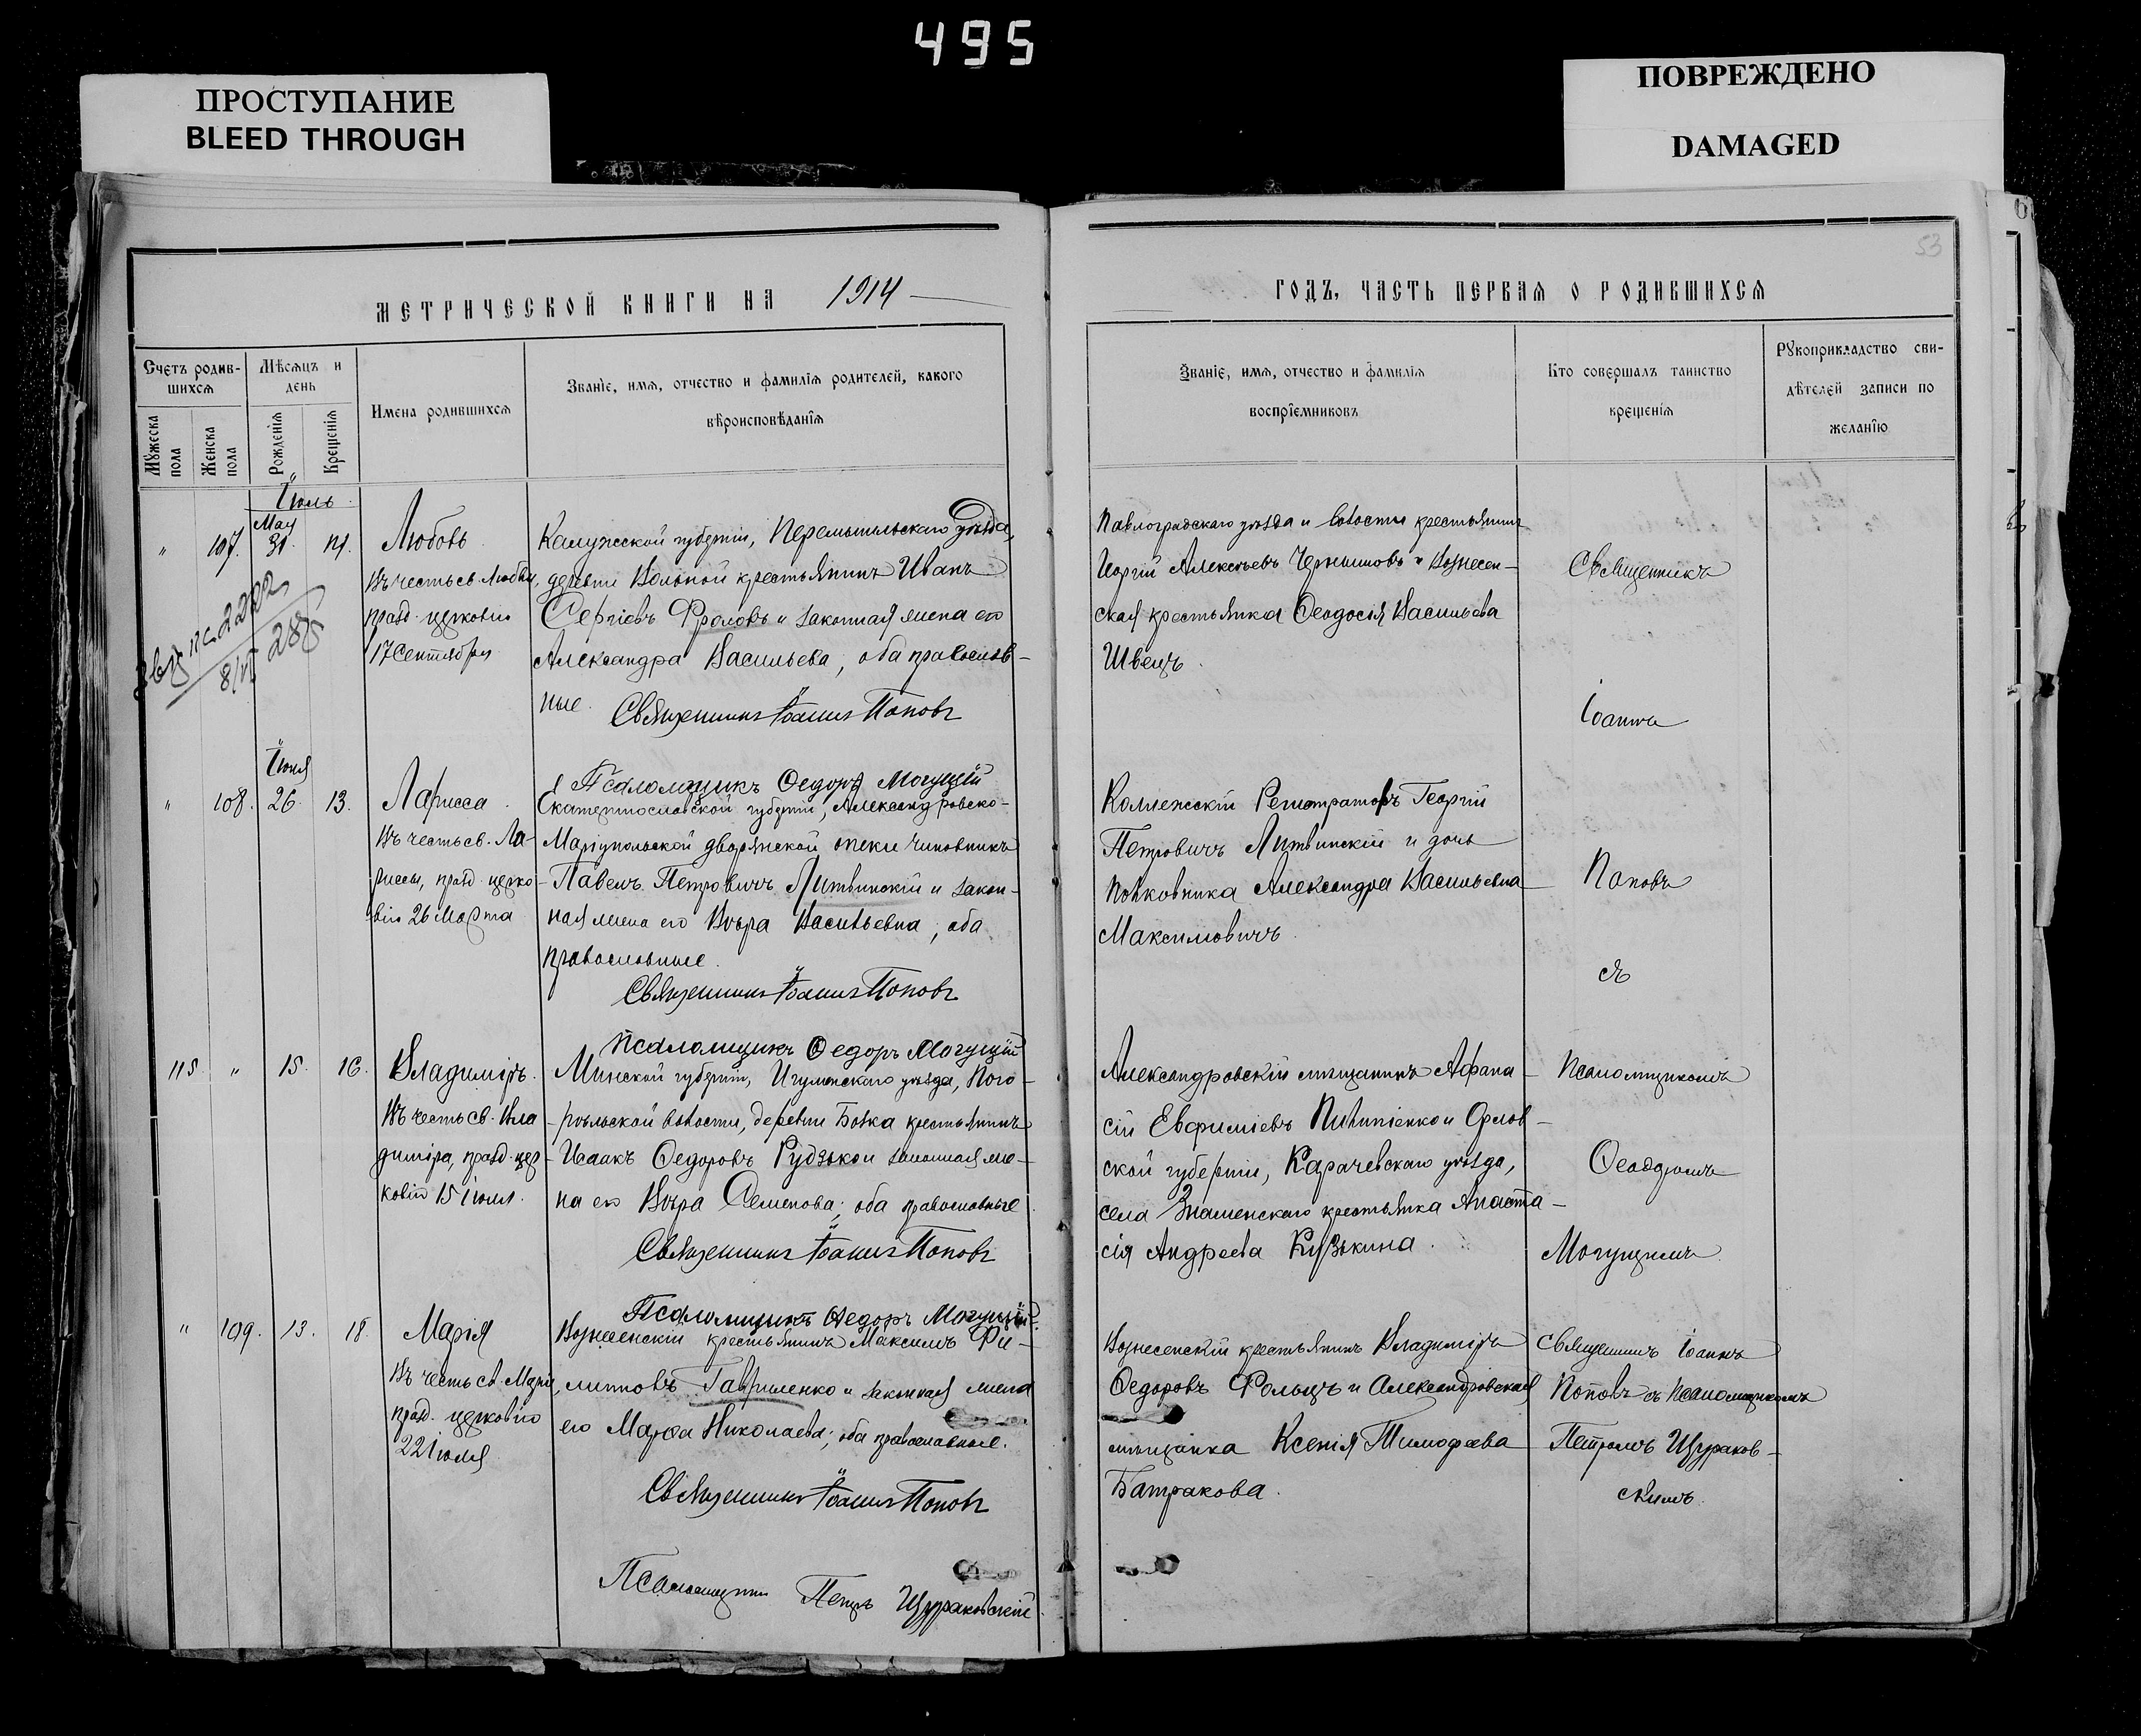 495
ПРОСТУПАНИЕ
BLEED THROUGH
ПОВРЕЖДЕНО
DAMAGED
53
МЕТРИЧЕСКОЙ КНИГИ НА 1914
Счетъ родившихся
Мѣсяцъ и день
Мужеска пола
Женска пола
Рожденія
Крещенія
Имена родившихся
Званіе, имя, отчество и фамилія родителей, какого
вѣроисповѣданія
Іюль
" 107. Мая 31. 12. Любовь
Въ честь св. Любви,
празд. церковію
17 Сентября
Калужской губерніи, Перемышльскаго уѣзда,
деревни Вольной крестьянинъ Иванъ
Сергіевъ Фроловъ и законная жена его
Александра Васильева, оба православ-
ные.
Священникъ Іоаннъ Поповъ
Псаломщикъ Ѳедоръ Могущій
" 108. Іюня 26. 13. Ларисса
Въ честь св. Ла-
риссы, празд. церко-
вію 26 Марта
Екатеринославской губерніи, Александровско-
Маріупольской дворянской опеки чиновникъ
Павелъ Петровичъ Литвинскій и закон-
ная жена его Вѣра Васильевна, оба
православные.
Священникъ Іоаннъ Поповъ
Псаломщикъ Ѳедоръ Могущій
115. " 15. 16. Владиміръ
Въ честь св. Вла-
диміра, празд. цер-
ковію 15 іюля.
Минской губерніи, Игуменскаго уѣзда, Пого-
рѣльской волости, деревни
крестьянинъ
Исаакъ Ѳедоровъ Рудзько и законная же-
на его Вѣра Семенова; оба православные
Священникъ Іоаннъ Поповъ
Псаломщикъ Ѳедоръ Могущій
" 109. 13. 18. Марія
Въ честь св. Маріи,
празд. церковію
22 Іюля
Вознесенскій крестьянинъ Максимъ Фи-
липповъ Гавриленко и законная жена
его Марѳа Николаева; оба православные.
Священникъ Іоаннъ Поповъ
Псаломщикъ Петръ Щураковскій
ГОДЪ, ЧАСТЬ ПЕРВАЯ О РОДИВШИХСЯ
Званіе, имя, отчество и фамилія
воспріемниковъ
Кто совершалъ таинство
крещенія
Рукоприкладство сви-
дѣтелей записи по
желанію
Павлоградскаго уѣзда и волости крестьянинъ
Георгій Алексѣевъ Чернышовъ и Вознесен-
ская крестьянка Ѳеодосія Васильева
Швецъ.
Коллежскій Регистраторъ Георгій
Петровичъ Литвинскій и дочь
Полковника Александра Васильевна
Максимовичъ.
Александровскій мѣщанинъ Афана-
сій Евфиміевъ Пилипенко и Орлов-
ской губерніи, Карачевскаго уѣзда,
села Знаменскаго крестьянка Анаста-
сія Андреева Кузькина.
Вознесенскій крестьянинъ Владиміръ
Ѳедоровъ Фольцъ и Александровская
мѣщанка Ксенія Тимофеева
Батракова.
Священникъ
Іоаннъ
Поповъ
съ
Псаломщикомъ
Ѳеодромъ
Могущимъ
Священникъ Іоаннъ
Поповъ съ Псаломщикомъ
Петромъ Щураков-
скимъ.